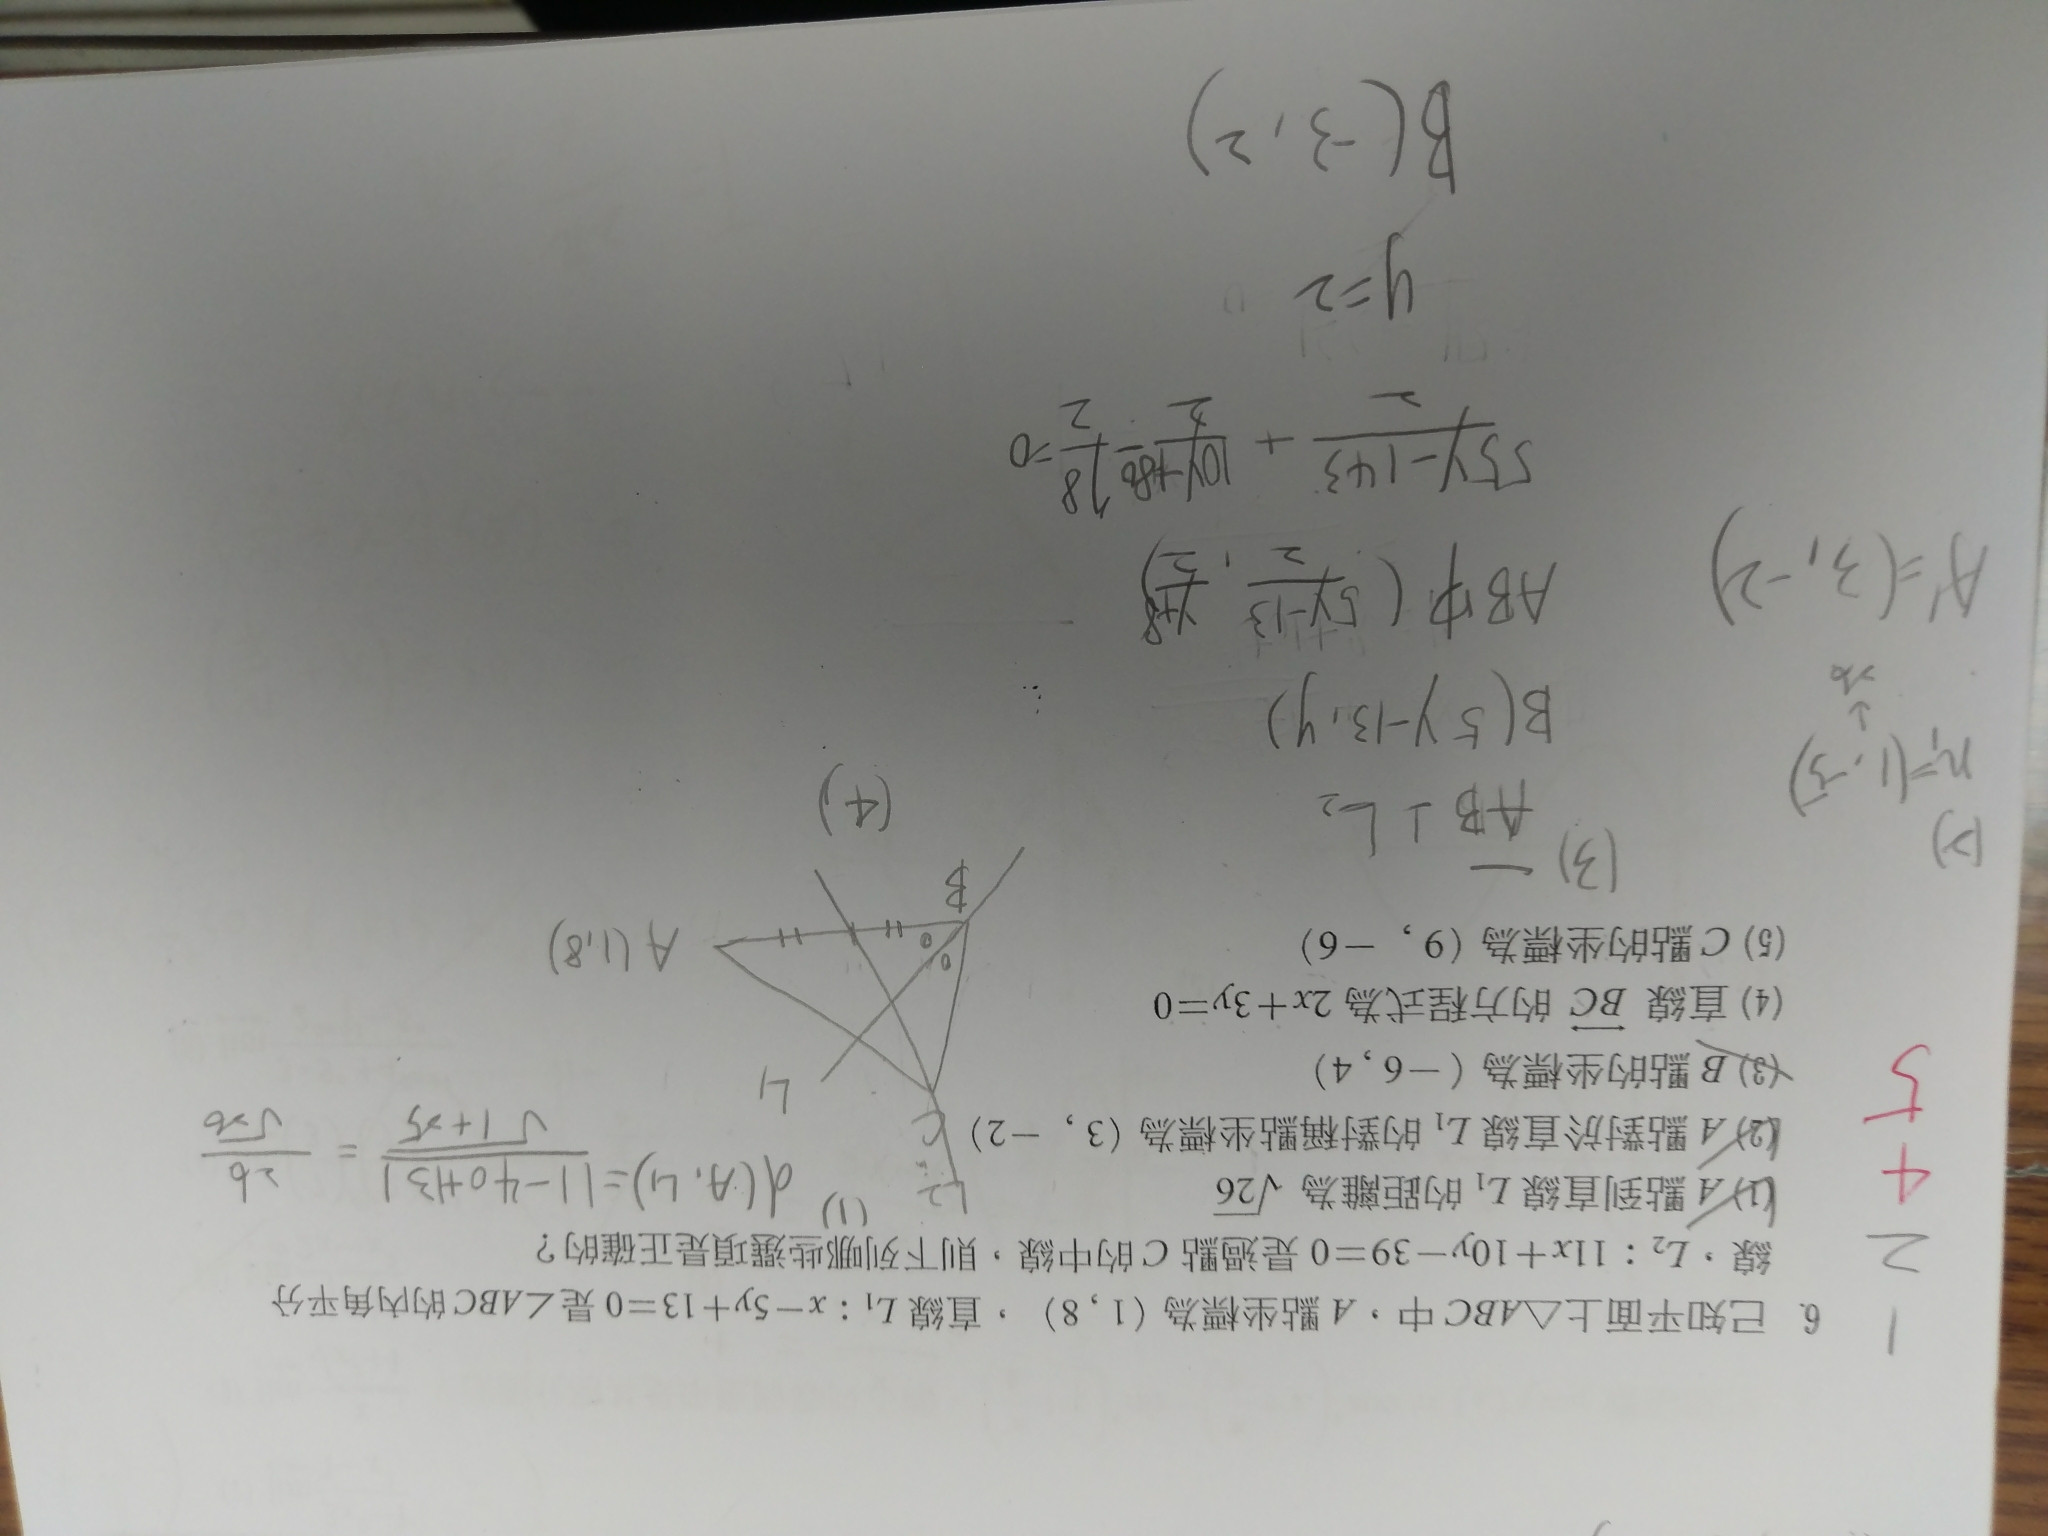 6. 已知平面上△ABC中，A點坐標為（1，8），直線 L₁：x－5y＋13＝0 是∠ABC的內角平分
線，L₂：11x＋10y－39＝0 是過點 C 的中線，則下列哪些選項是正確的？
(1) A 點到直線 L₁ 的距離為 √26
(2) A 點對於直線 L₁ 的對稱點坐標為（3，－2）
(3) B 點的坐標為（－6，4）
(4) 直線 BC 的方程式為 2x＋3y＝0
(5) C 點的坐標為（9，－6）
1
2
4
5
(1) d(A, L₁)=|1-40+13|/√1+25 = 26/√26
L2
C
L1
B
A(1,8)
(2)
n₁=(1,-5)
↓
26
A'=(3,-2)
(3)
AB⊥L₂
B(5y-13,y)
AB中(5y-13/2, y+8/2)
55y-143/2 + 10y+80/2 - 78/2 =0
y=2
B(-3,2)
(4)